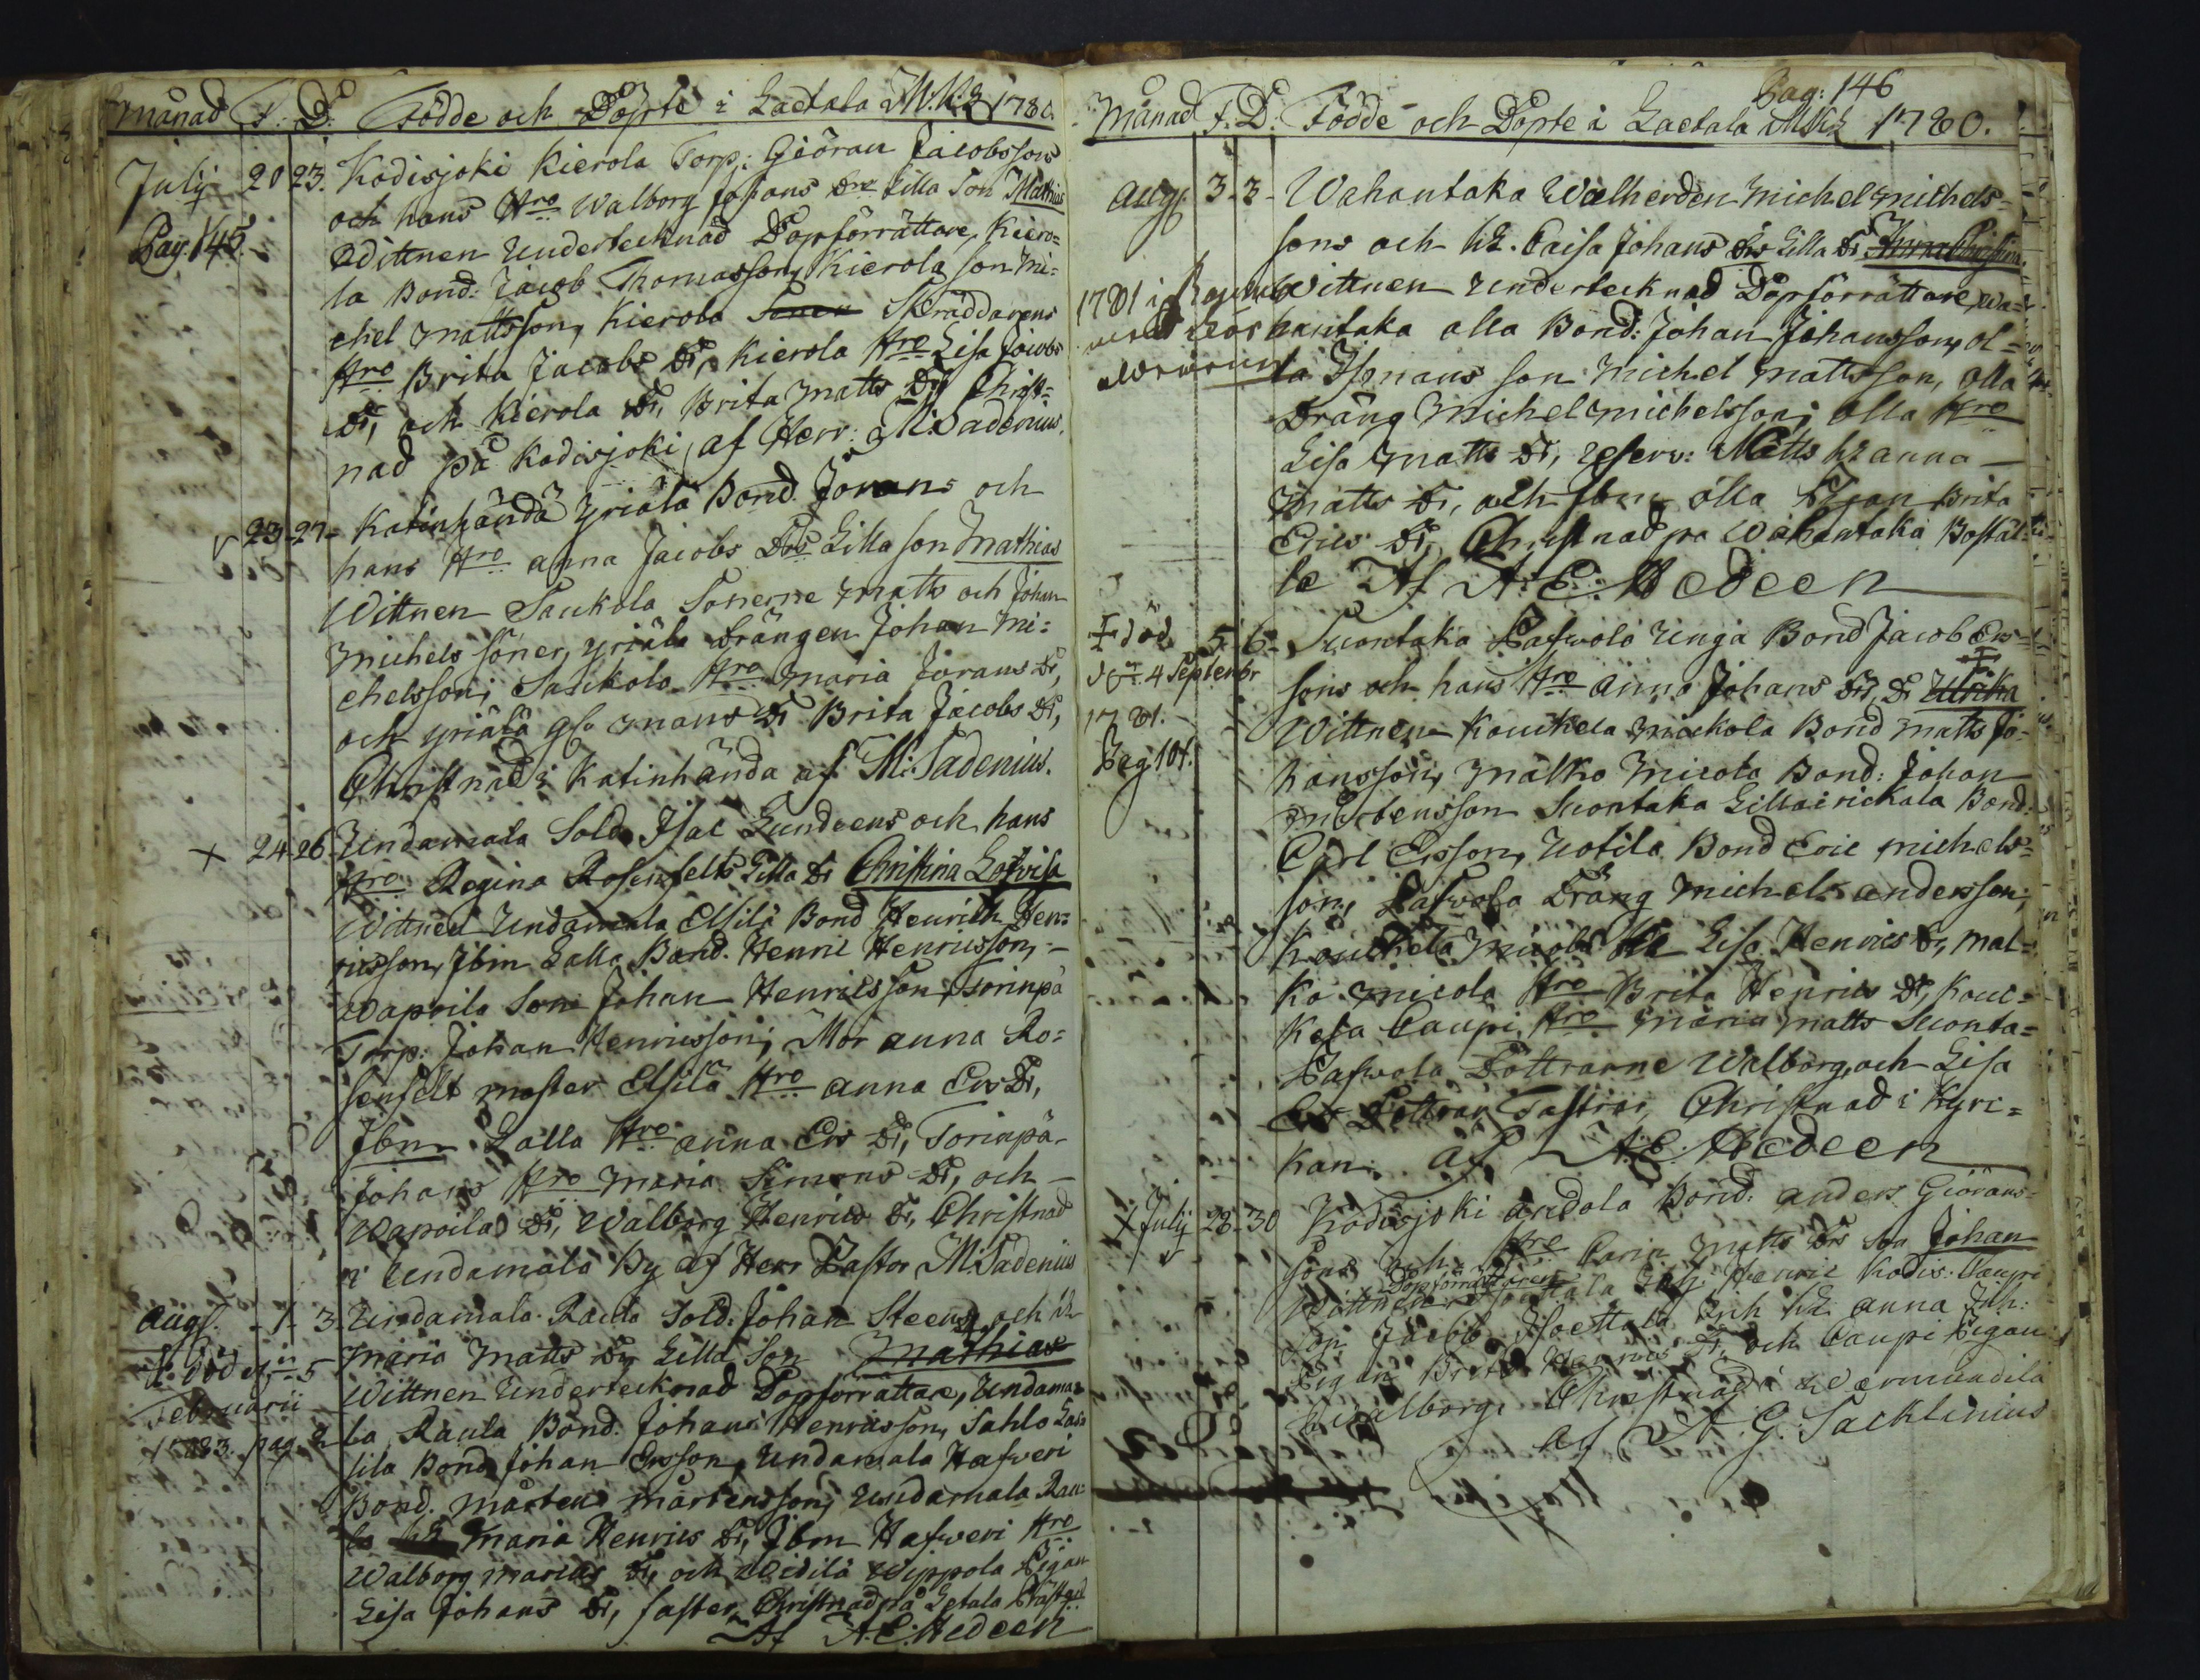 Månad F. D. Födde och Döpte i Laetala M.K.L 1780.
July 20 23. Kodisjoki Kierola Torp: Giöran Jacobssons
och hans Hro Walborg Johans Drs Lilla Son Mathias
Pag. 145. Wittnen Undertecknad Dopförrättare, Kiero=
la Bond: Jacob Thomasson, Kierola son Mi=
chel Mattsson, Kierola Skräddarens
Hro Brita Jacobs Dr, Kierola Hro Lisa Jacobs
Dr, och Kierola Dr, Brita Matts Dr Christ=
nad på Kodisjoki, af Herr: M: Sadenius.
23-27- Katinhända Yriälä Bond. Jörans och
hans Hro Anna Jacobs Drs Lilla son Mathias
Wittnen Saukola Sönerne Matts och Johan
Michels söner, Yriälä Drängen Johan Mi=
chelsson; Saukola Hro Maria Jörans Dr,
och Yriälä Brita Jacobs Dr,
Christnad i Katinhända af M: Sadenius.
+ 24-26. Undamala Sold. Isac Lundeens och hans
Hro Regina Rosenfelts Lilla Dr Christina Lovisa
Wittnen Undamala Elsilä Bond Henrich Hen=
ricsson, Ibm Lalla Bond. Henric Henricsson,-
Wapoila Son Johan Henricsson, Torinpä
Torp: Johan Henricsson; Mor Anna Ro=
senfelt moster Elsilä Hro Anna Ers Dr,
Ibm Lalla Hro Anna Ers Dr, Torinpä-
Johans Hro Maria Simons Dr, och-
Wapoilas Dr, Walborg Henrics Dr, Christnad
i Undamala By af Herr Pastor M: Sadenius
Augs. 1- 3. Undamala Raula Sold. Johan Steens och
Maria Matts Drs Lilla Son Mathias
död 5 Wittnen Undertecknad Dopförrättare, Undama=
Februarii
1783. pag. 2 la Raula Bond. Johan Henricsson, Sahlo Las=
sila Bond Johan Ersson, Undamala Hafveri
Bond. Mårten Mårtensson, Undamala Rau=
la Maria Henrics Dr, Ibm Hafveri Hro
Walborg Dr, och Widilä Wippola Pigan
Lisa Johans Dr, faster, Christnad på Letala
Af A. E. Hedeen
Pag: 146
Månad F. D. Födde och Döpte i Laetala MKL 1780.
Aug. 3-3- Wahantaka Walherden Michel Michels=
sons och H. Caisa Johans Drs Lilla Dr Anna Christina
1781 i Wittnen Undertecknad Dopförrättare, Wa=
hantaka Olla Bond: Johan Johansson, Ol=
la Son Michel Mattsson, Olla
Dräng Michel Michelsson; Olla Hro
Lisa Matts Dr, Reserv: Matts H Anna
Matts Dr, och Ibm Olla Pigan Brita
Erics Dr, Christnad på Wahantaka Bostäl=
le Af A: E: Hedeen
+ död 5-6- Suontaka Pafwola Unga Bond Jacob Ers=
d. 4 Septembr sons och hans Hro Anna Johans Drs, Dr Ulrika
1781. Wittnen Kaukela Mickola Bond Matts Jo=
Pag 101. hansson, Mälko Micola Bond: Johan
Mårtensson Suontaka Lilla Bond.
Carl Ersson, Uotila Bond Eric Michels=
son, Pafwola Dräng Michel Andersson;
Kaukela Micola Lisa Henrics Dr, Mäl=
kö Micola Hro Brita Henrics Dr, Kau=
kela Caupi Hro Maria Matts Suonta=
Pafwola Döttrarne Walborg, och Lisa
Ers Döttrar Fastrar, Christnad i Kyri=
kan. af A: E: Hedeen
+ July 28-30 Kodisjoki Andola Bond: Anders Giörans=
sons och Hro Carin Matts Drs son Johan
Dopförrättaren
Wittnen Henric Kodis. Caupi
Son Jacob H Anna Joh:
Pigan Brita Henrics Dr, och Caupi Pigan
Walborg. Christnad i Wermundila
af A. G. Sacklinius